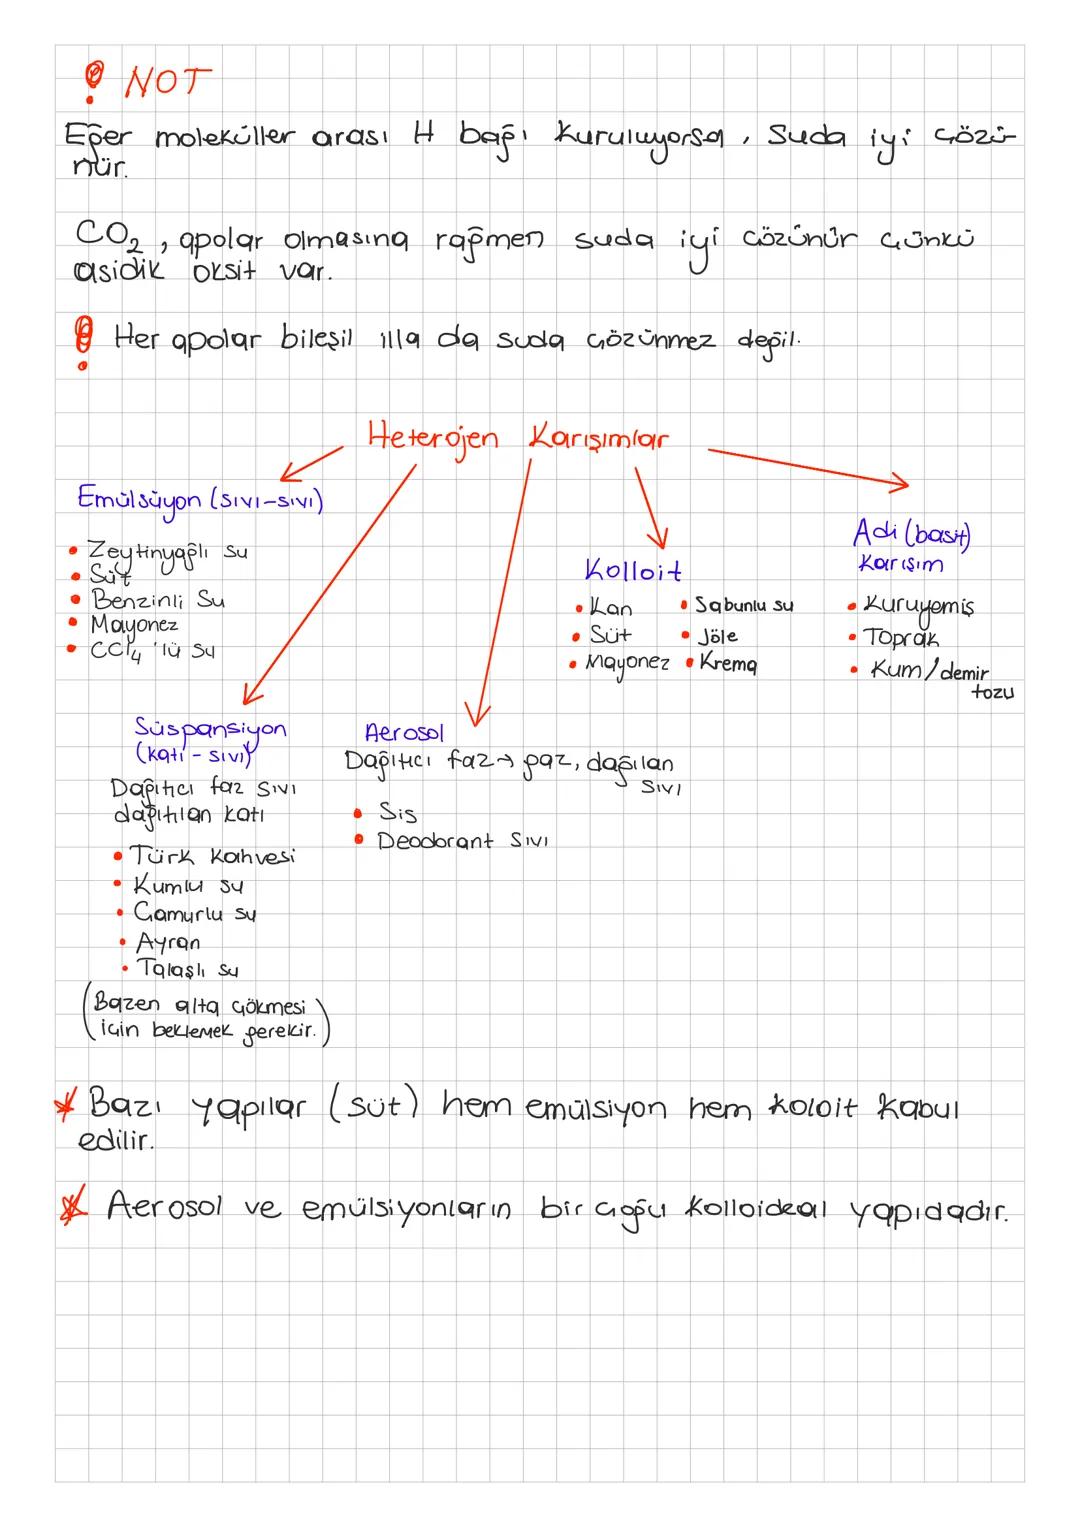 NOT
Eğer moleküller arası H bağı kuruluyorsa, suda iyi çözü-
nür.
CO₂, apolar olmasına rağmen suda iyi çözünür çünkü
asidik oksit var.
Her apolar bileşil illa da suda çözünmez değil.
Heterojen Karışımlar
Emülsüyon (sıvı-sıvı)
• Zeytinyağlı su
• Süt
• Benzinli Su
• Mayonez
• CCl₄'lü su
Kolloit
• Kan
• Süt
• Mayonez
• Sabunlu su
• Jöle
• Krema
Adi (basit)
Karışım
• Kuruyemiş
• Toprak
• Kum/demir
tozu
Süspansiyon
(katı - sıvı)
Dağıtıcı faz sıvı
dağıtılan katı
• Türk Kahvesi
• Kumlu su
• Çamurlu su
• Ayran
• Talaşlı su
(Bazen alta çökmesi
için beklemek gerekir.)
Aerosol
Dağıtıcı faz → gaz, dağılan
sıvı
• Sis
• Deodorant sıvı
* Bazı yapılar (süt) hem emülsiyon hem koloit kabul
edilir.
* Aerosol ve emülsiyonların bir çoğu kolloideal yapıdadır.